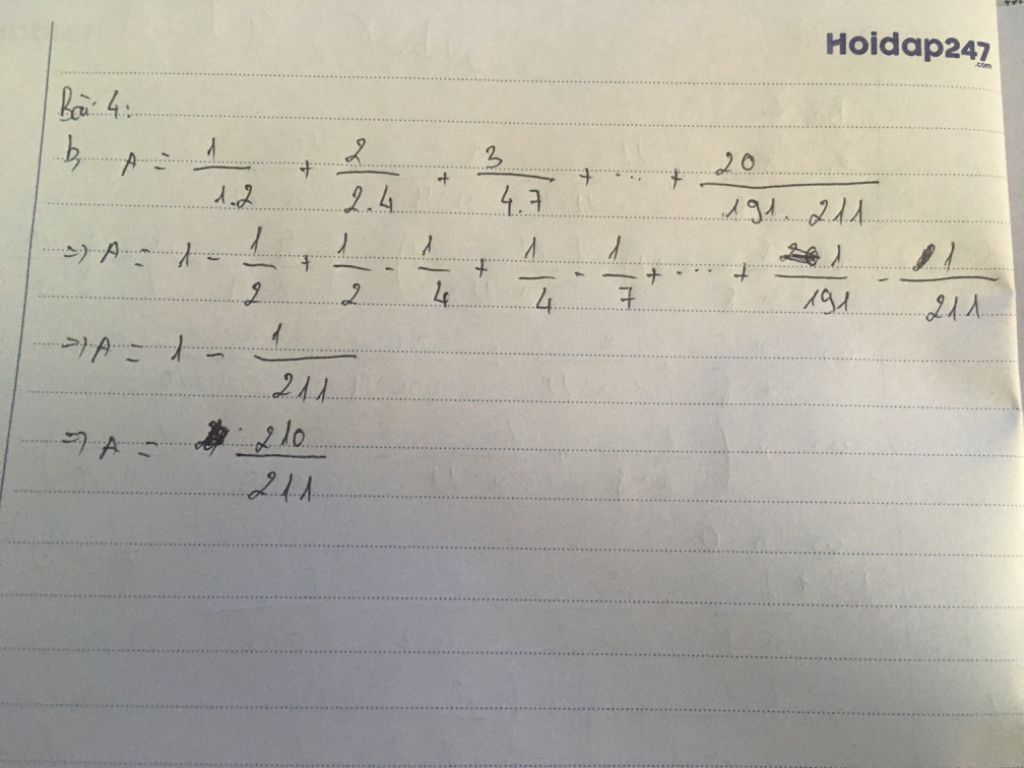 Hoidap247
.com
Bài 4:
b, A = 1/1.2 + 2/2.4 + 3/4.7 + ... + 20/191.211
=> A = 1 - 1/2 + 1/2 - 1/4 + 1/4 - 1/7 + ... + 1/191 - 1/211
=> A = 1 - 1/211
=> A = 210/211